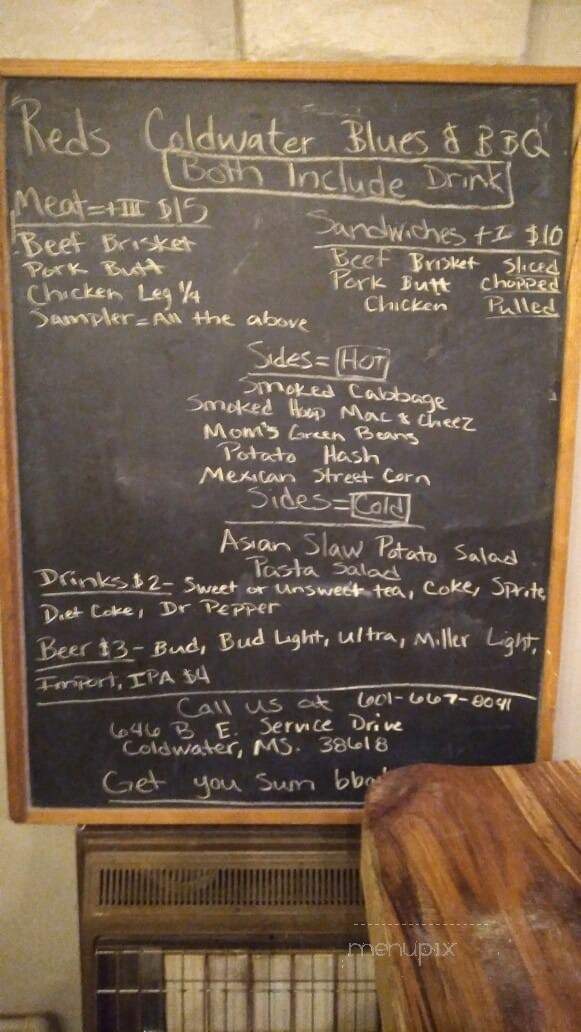 Reds Coldwater Blues & BBQ
Both Include Drink
Meat=+III $15
Beef Brisket
Pork Butt
Chicken Leg 1/4
Sampler=All the above
Sandwiches +I $10
Beef Brisket Sliced
Pork Butt chopped
Chicken Pulled
Sides= HOT
Smoked Cabbage
Smoked Hoop Mac & Cheez
Mom's Green Beans
Potato Hash
Mexican Street Corn
Sides= Cold
Asian Slaw Potato Salad
Pasta Salad
Drinks $2- Sweet or unsweet tea, Coke, Sprite,
Diet Coke, Dr Pepper
Beer $3- Bud, Bud Light, Ultra, Miller Light,
Import, IPA $4
Call us at 601-667-8041
646 B E. Service Drive
Coldwater, MS. 38618
Get you sum
menupix